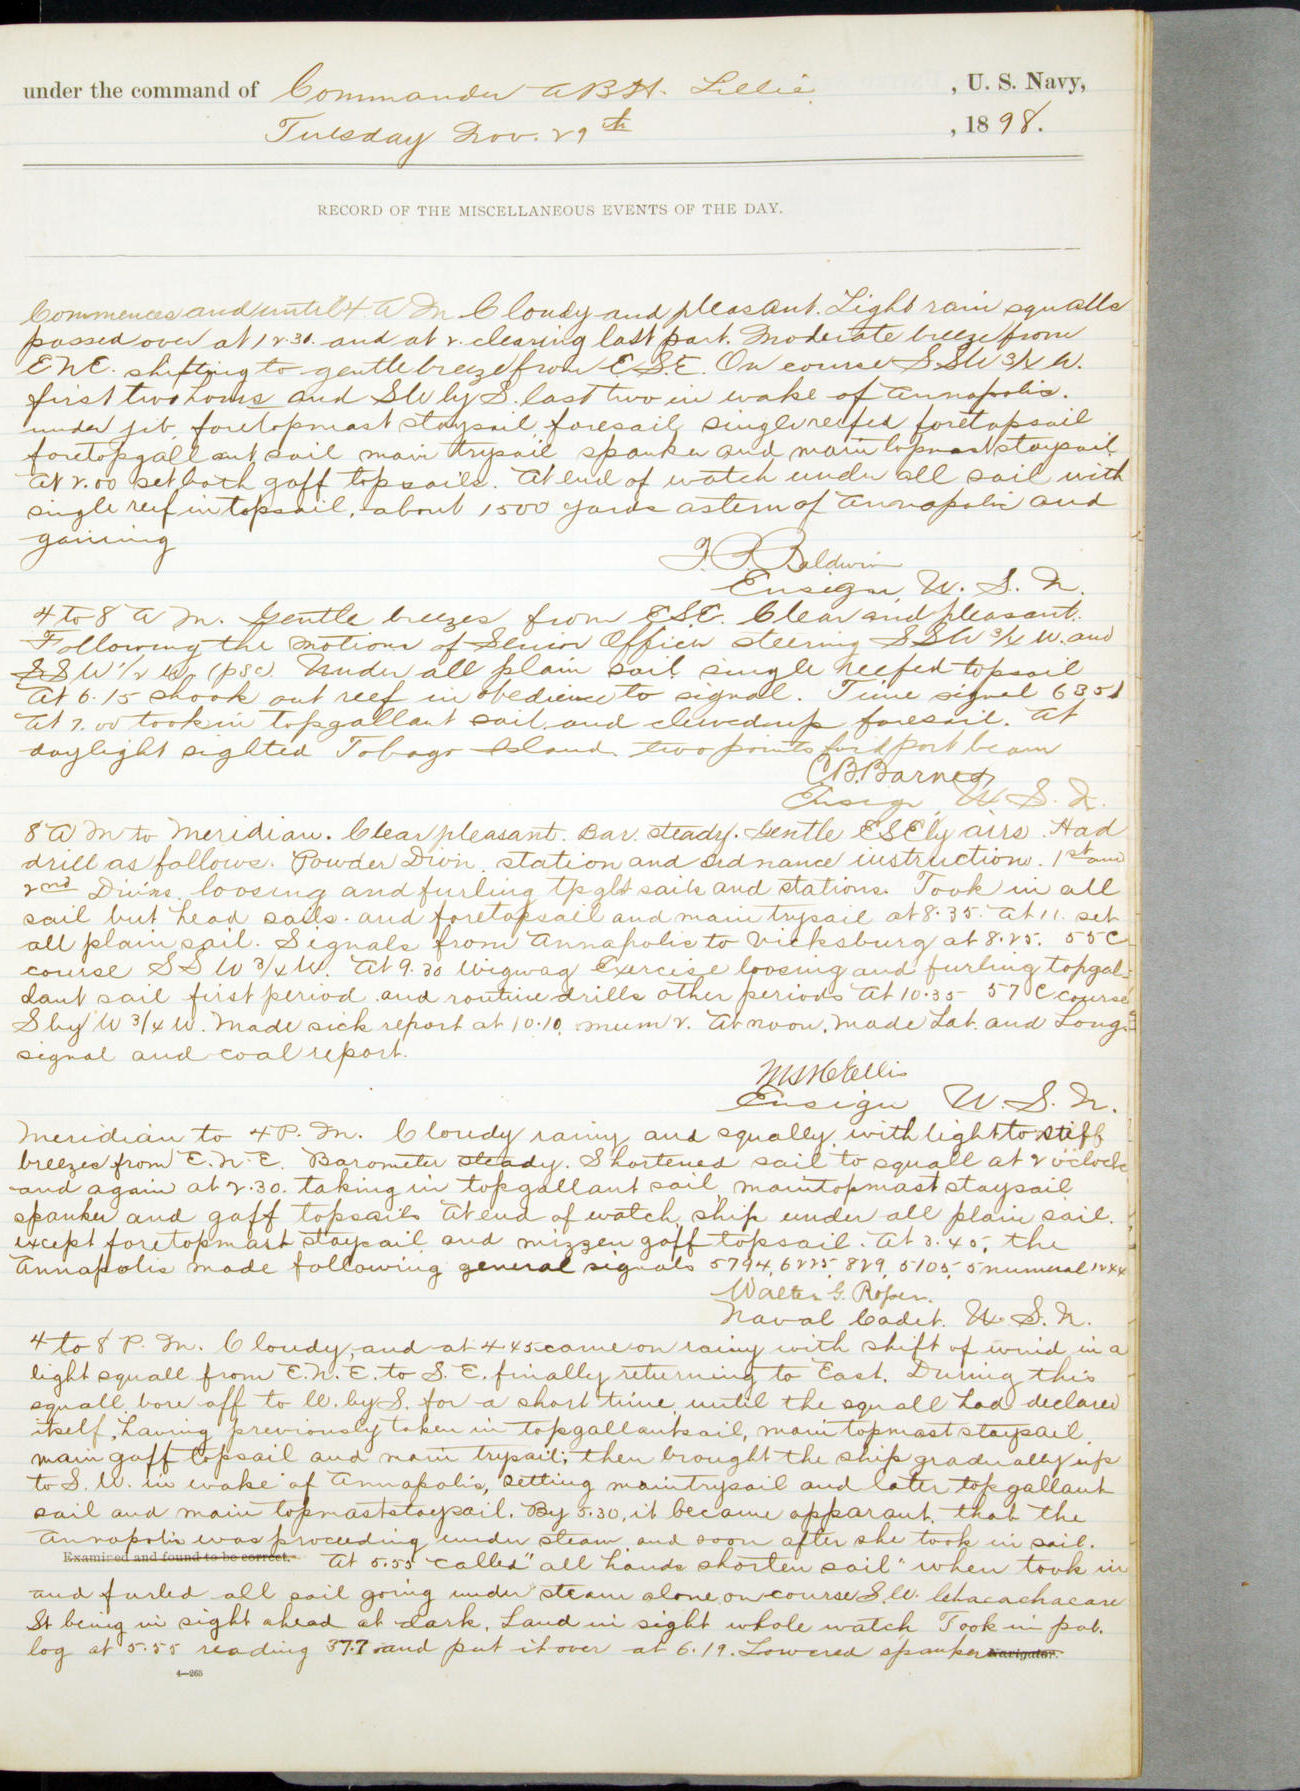 under the command of Commander A.B.H. Lillie, U. S. Navy,
Tuesday Nov. 29th, 1898.
RECORD OF THE MISCELLANEOUS EVENTS OF THE DAY.
Commences and until 4 A M Cloudy and pleasant. Light rain squalls
passed over at 12.30. and at 2. clearing last part. Moderate breeze from
ENE. shifting to gentle breeze from E.S.E. On course S.SW 3/4 W.
first two hours and SW by S. last two in wake of Annapolis.
under jib, foretopmast staysail foresail, single reefed foretopsail
foretopgallant sail main trysail spanker and main topmast staysail
At 2.00 set both gaff topsails. At end of watch under all sail with
single reef in topsail, about 1500 yards astern of Annapolis and
gaining
F. P. Baldwin
Ensign, U. S. N.
4 to 8 A M. Gentle breezes from E.S.E. Clear and pleasant.
Following the motions of Senior Officer steering SSW 3/4 W. and
SSW 1/2 W (psc) Under all plain sail single reefed topsail
At 6.15 shook out reef in obedience to signal. Time signal 6351
At 7.00 took in topgallant sail and clewed up foresail. At
daylight sighted Tobago Island two points for'd port beam
C.B. Barnes
Ensign, U. S. N.
8 A M to Meridian. Clear pleasant. Bar. steady. Gentle ESE'ly airs. Had
drill as follows. Powder Divn. station and ordnance instruction. 1st and
2nd Divns. loosing and furling tpglt sails and stations. Took in all
sail but head sails. and foretopsail and main trysail at 8.35. At 11. set
all plain sail. Signals from Annapolis to Vicksburg at 8.25. 55 C
course SSW 3/4 W. At 9.30 Wigwag Exercise loosing and furling topgal-
lant sail first period and routine drills other periods At 10.35 57 C course
S by W 3/4 W. Made sick report at 10.10, num 2. At noon, made Lat. and Long.
signal and coal report.
Ellis
Ensign U. S. N.
Meridian to 4 P. M. Cloudy rainy and squally with light to stiff
breezes from E.N.E. Barometer steady. Shortened sail to squall at 2 o'clock
and again at 2.30. taking in topgallant sail, maintopmast staysail
spanker and gaff topsails At end of watch ship under all plain sail.
except foretopmast staysail and mizzen gaff topsail. At 3.45, the
Annapolis made following general signals 5794, 6225, 829, 5105, 5 numeral 1244
Walter G. Roper.
Naval Cadet. U. S. N.
4 to 8 P. M. Cloudy, and at 4.45 came on rainy with shift of wind in a
light squall from E.N.E. to S.E. finally returning to East. During this
squall, bore off to W. by S. for a short time, until the squall had declared
itself, having previously taken in topgallantsail, main topmast staysail
main gaff topsail and main trysail; then brought the ship gradually up
to S.W. in wake of Annapolis, setting maintrysail and later topgallant
sail and main topmaststaysail. By 5.30, it became apparant, that the
Annapolis was proceeding under steam, and soon after she took in sail.
Examined and found to be correct. At 5.55 called "all hands shorten sail" when took in
and furled all sail going under steam alone, on course S.W. Chacachacare
St being in sight ahead at dark. Land in sight whole watch Took in pat.
log at 5.55 reading 37.7 and put it over at 6.19. Lowered spanker Navigator.
4—265